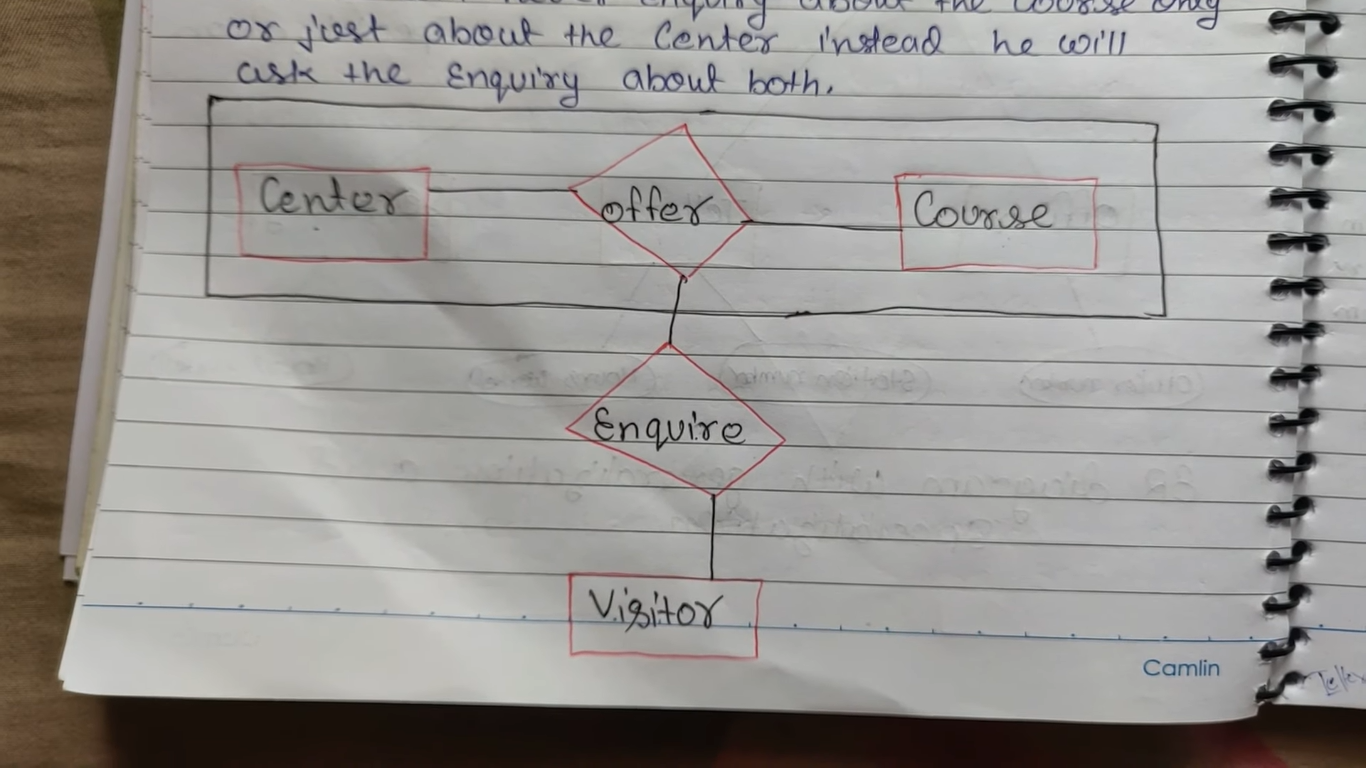 enquiry about the course only
or just about the Center instead he will
ask the Enquiry about both.
Center
offer
Course
Enquire
Visitor
Camlin